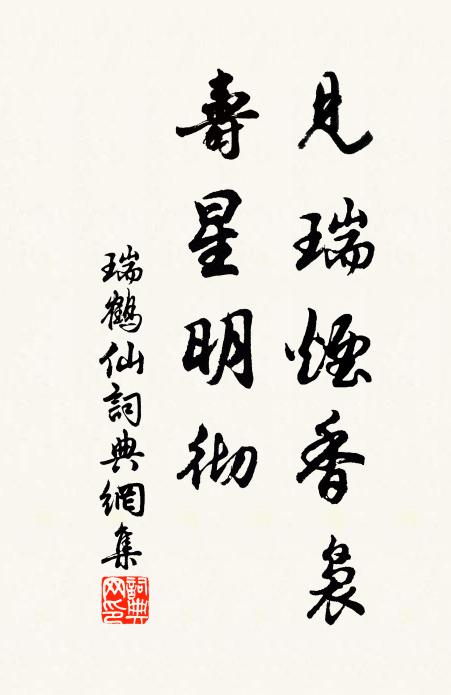 見瑞煙香裊
壽星明彻
瑞鶴仙詞典網集
詞典網印